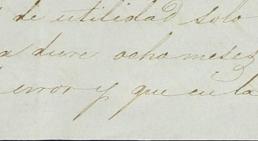 de utilidad solo
a dure ocho meses
error y que en la